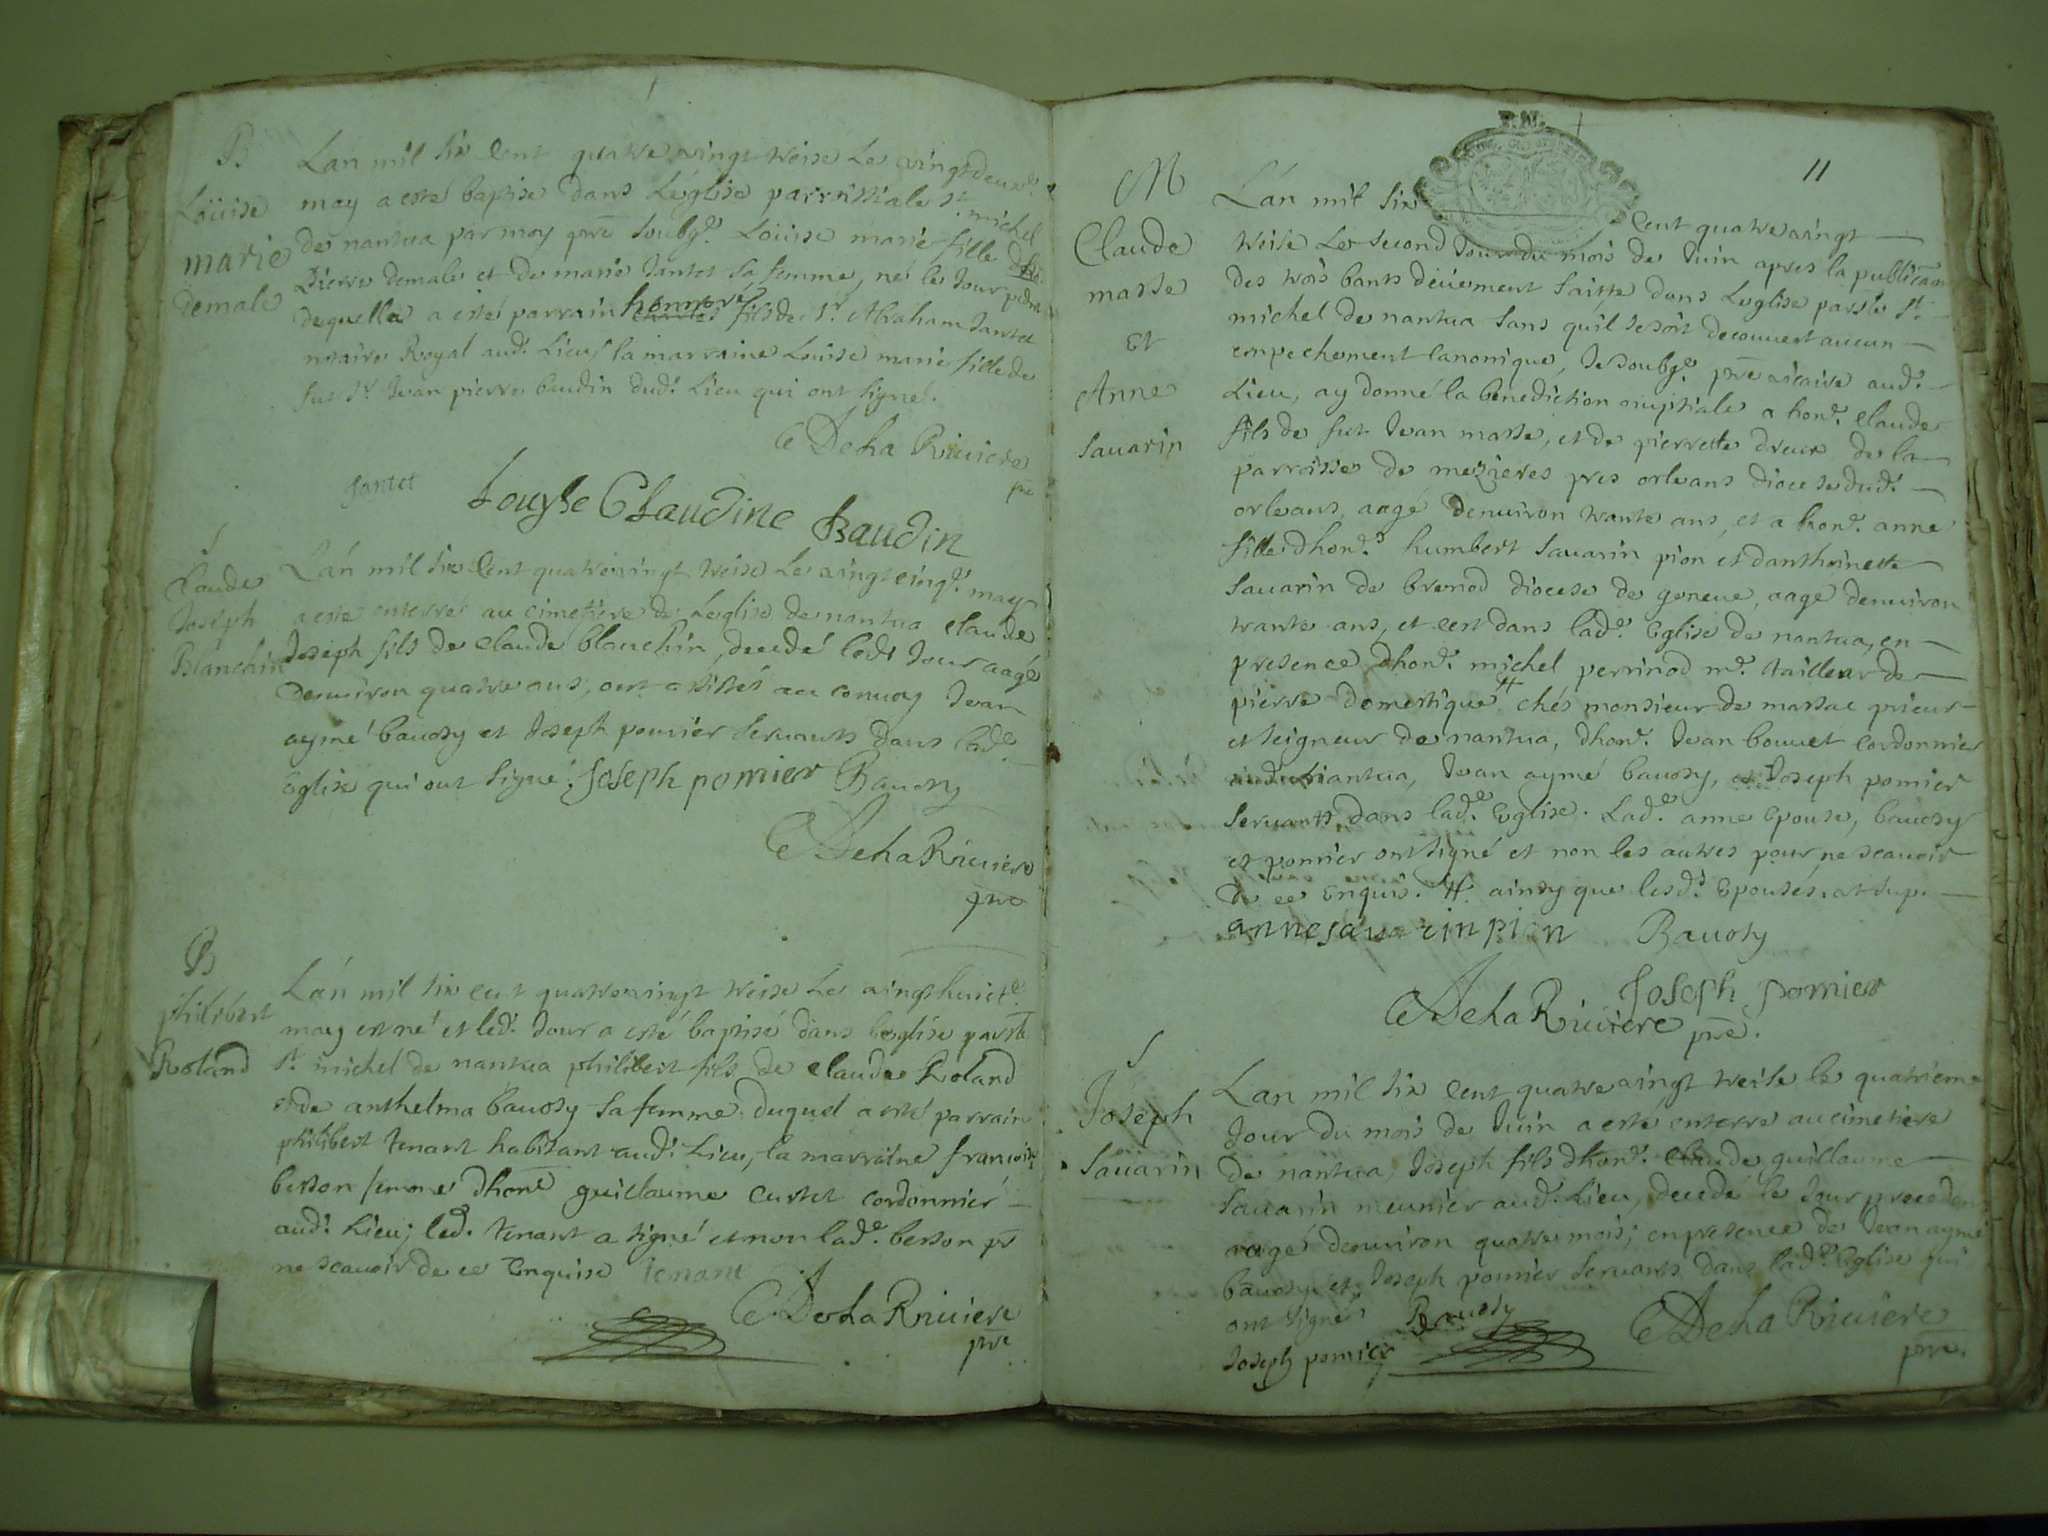 B
Louise
marie
Demale
Lan mil six Cent quatre vingt treise Le vingtdeux.e
may a esté baptisé dans L'eglise parroissiale S.t michel
de nantua par moy pre soubg.e Louise marie fille de
Pierre Demale et de marie Jantet sa femme, né le Jour
dequelle a esté parrain honnoré fils de S.r Abraham Jantet
notaire Royal aud.t Lieu, la marraine Louise marie fille de
fut S.r Jean pierre baudin dud.t Lieu qui ont signé.
C DehaRiviere
pre
Jantet
Louyse Claudine Baudin
S
Claude
Joseph
Blanchin
Lan mil six Cent quatrevingt treise Le vingtcinq.e may
a esté enterré au cimetiere de Leglise de nantua claude
Joseph fils de claude blanchin, decedé led.t Jour aagé
denviron quatre ans, ont assistés au convoy Jean
aymé bavosy et Joseph pomier servants dans lad.e
Eglise qui ont signé. Joseph pomier Bavosy
C DehaRiviere
pre
B
philibert
Roland
Lan mil six cent quatrevingt treise Le vingthuict.e
may est né et led.t Jour a esté baptisé dans leglise parr.le
S.t michel de nantua philibert fils de claude Roland
et de anthelma bavosy sa femme. duquel a esté parrain
philibert tenant habitant aud.t Lieu, la marraine françoise
berson femme dhon.e guillaume custet cordonnier
aud.t Lieu; led. tenant a signé et non lad.e berson p.r
ne scavoir de ce Enquise tenant
C DehaRiviere
pre
11
M
Claude
masse
et
Anne
Savarin
Lan mil six Cent quatre vingt
treise Le second Jour du mois de Juin apres la publicãon
des trois bants deüement faitte dans Leglise parr.le S.t
michel de nantua sans quil se soit decouvert aucun
empechement canonique, Je soubg.e pre vicaire aud.t
Lieu, ay donné la benediction nuptiale a hon.e claude
fils de fut Jean masse, et de pierrette dreux de la
parroisse de mezieres pres orleans diocese dud.t
orleans, aagé denviron trante ans, et a hon.e anne
fille dhon.e humbert savarin pion et danthoinette
savarin de brenod diocese de geneve, aage denviron
trante ans, et cest dans lad.e Eglise de nantua, en
presence dhon.e michel perrinod m.e tailleur de
pierre domestique # chés monsieur de massac prieur
et seigneur de nantua, dhon.e Jean bouvet cordonnier
aud. nantua, Jean aymé bavosy, et Joseph pomier
servants dans lad.e Eglise. Lad.e anne Epouse, bavosy
et pomier ont signé et non les autres pour ne scavoir
de ce Enquis. # ainsy que lesd.s Epousés. at sup.
anne savarin pion Bavosy
Joseph pomier
C DehaRiviere pre.
S
Joseph
Savarin
Lan mil six Cent quatre vingt treise le quatrieme
Jour du mois de Juin a esté enterré au cimetiere
de nantua, Joseph fils dhon.e claude guillaume
savarin meunier aud.t Lieu, decedé le Jour precedent
aagé denviron quatre mois; en presence de Jean aymé
bavosy et Joseph pomier servants dans lad.e Eglise qui
ont signé Bavosy
Joseph pomier
C DehaRiviere
pre.